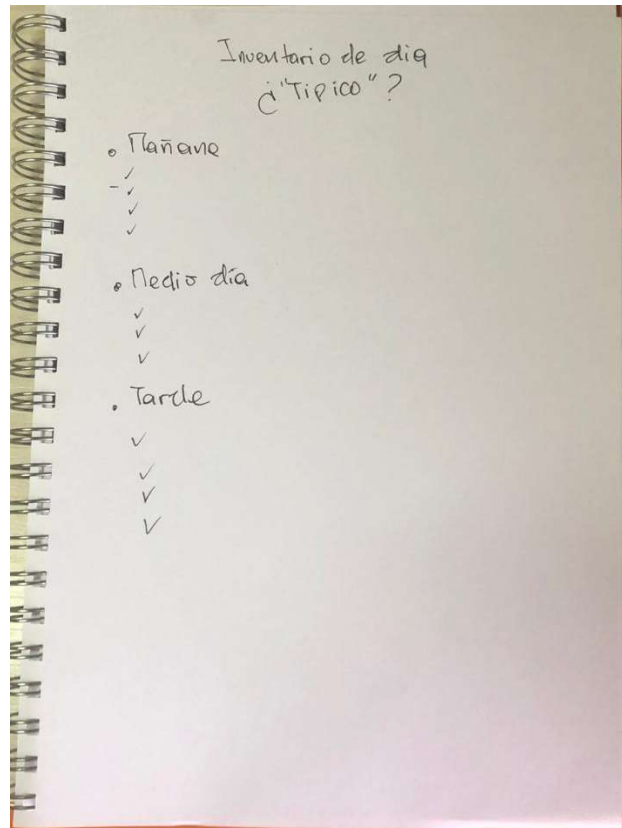 Inventario de dia
¿"Tipico"?
• Mañana
✓
- ✓
✓
✓
• Medio día
✓
✓
✓
• Tarde
✓
✓
✓
✓